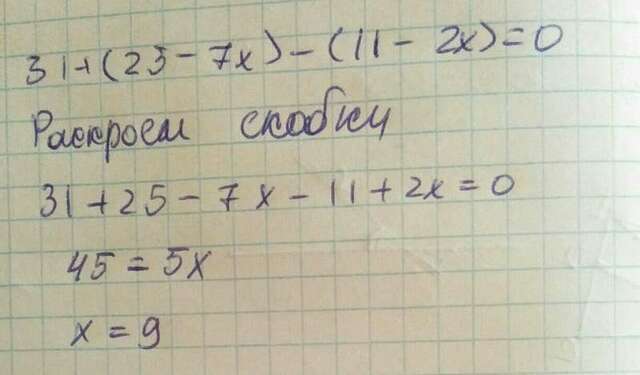 31+(25-7x)-(11-2x)=0
Раскроем скобки
31+25-7x-11+2x=0
45=5x
x=9